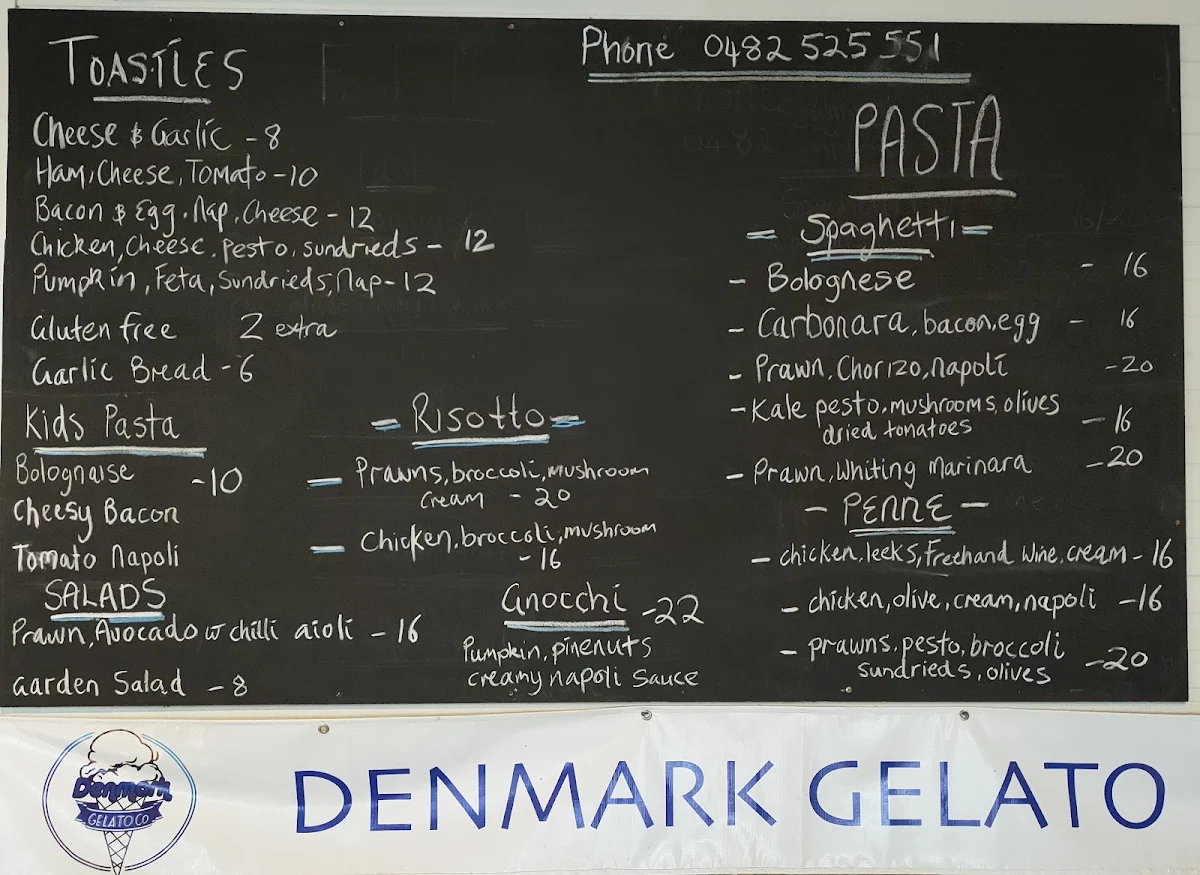 TOASTIES
Cheese & Garlic - 8
Ham, Cheese, Tomato - 10
Bacon & Egg, Nap, Cheese - 12
Chicken, Cheese, Pesto, sundrieds - 12
Pumpkin, Feta, Sundrieds, Nap - 12
Gluten free 2 extra
Garlic Bread - 6
Kids Pasta
Bolognaise - 10
Cheesy Bacon
Tomato Napoli
SALADS
Prawn, Avocado w chilli aioli - 16
Garden Salad - 8
= Risotto =
- Prawns, broccoli, mushroom
cream - 20
- Chicken, broccoli, mushroom
- 16
Gnocchi - 22
Pumpkin, pinenuts
creamy napoli sauce
Phone 0482 525 551
PASTA
= Spaghetti =
- Bolognese - 16
- Carbonara, bacon, egg - 16
- Prawn, Chorizo, Napoli - 20
- Kale pesto, mushrooms, olives
dried tonatoes - 16
- Prawn, Whiting Marinara - 20
- PENNE -
- chicken, leeks, Freehand Wine, cream - 16
- chicken, olive, cream, napoli - 16
- prawns, pesto, broccoli
sundrieds, olives - 20
Denmark
GELATO CO
DENMARK GELATO